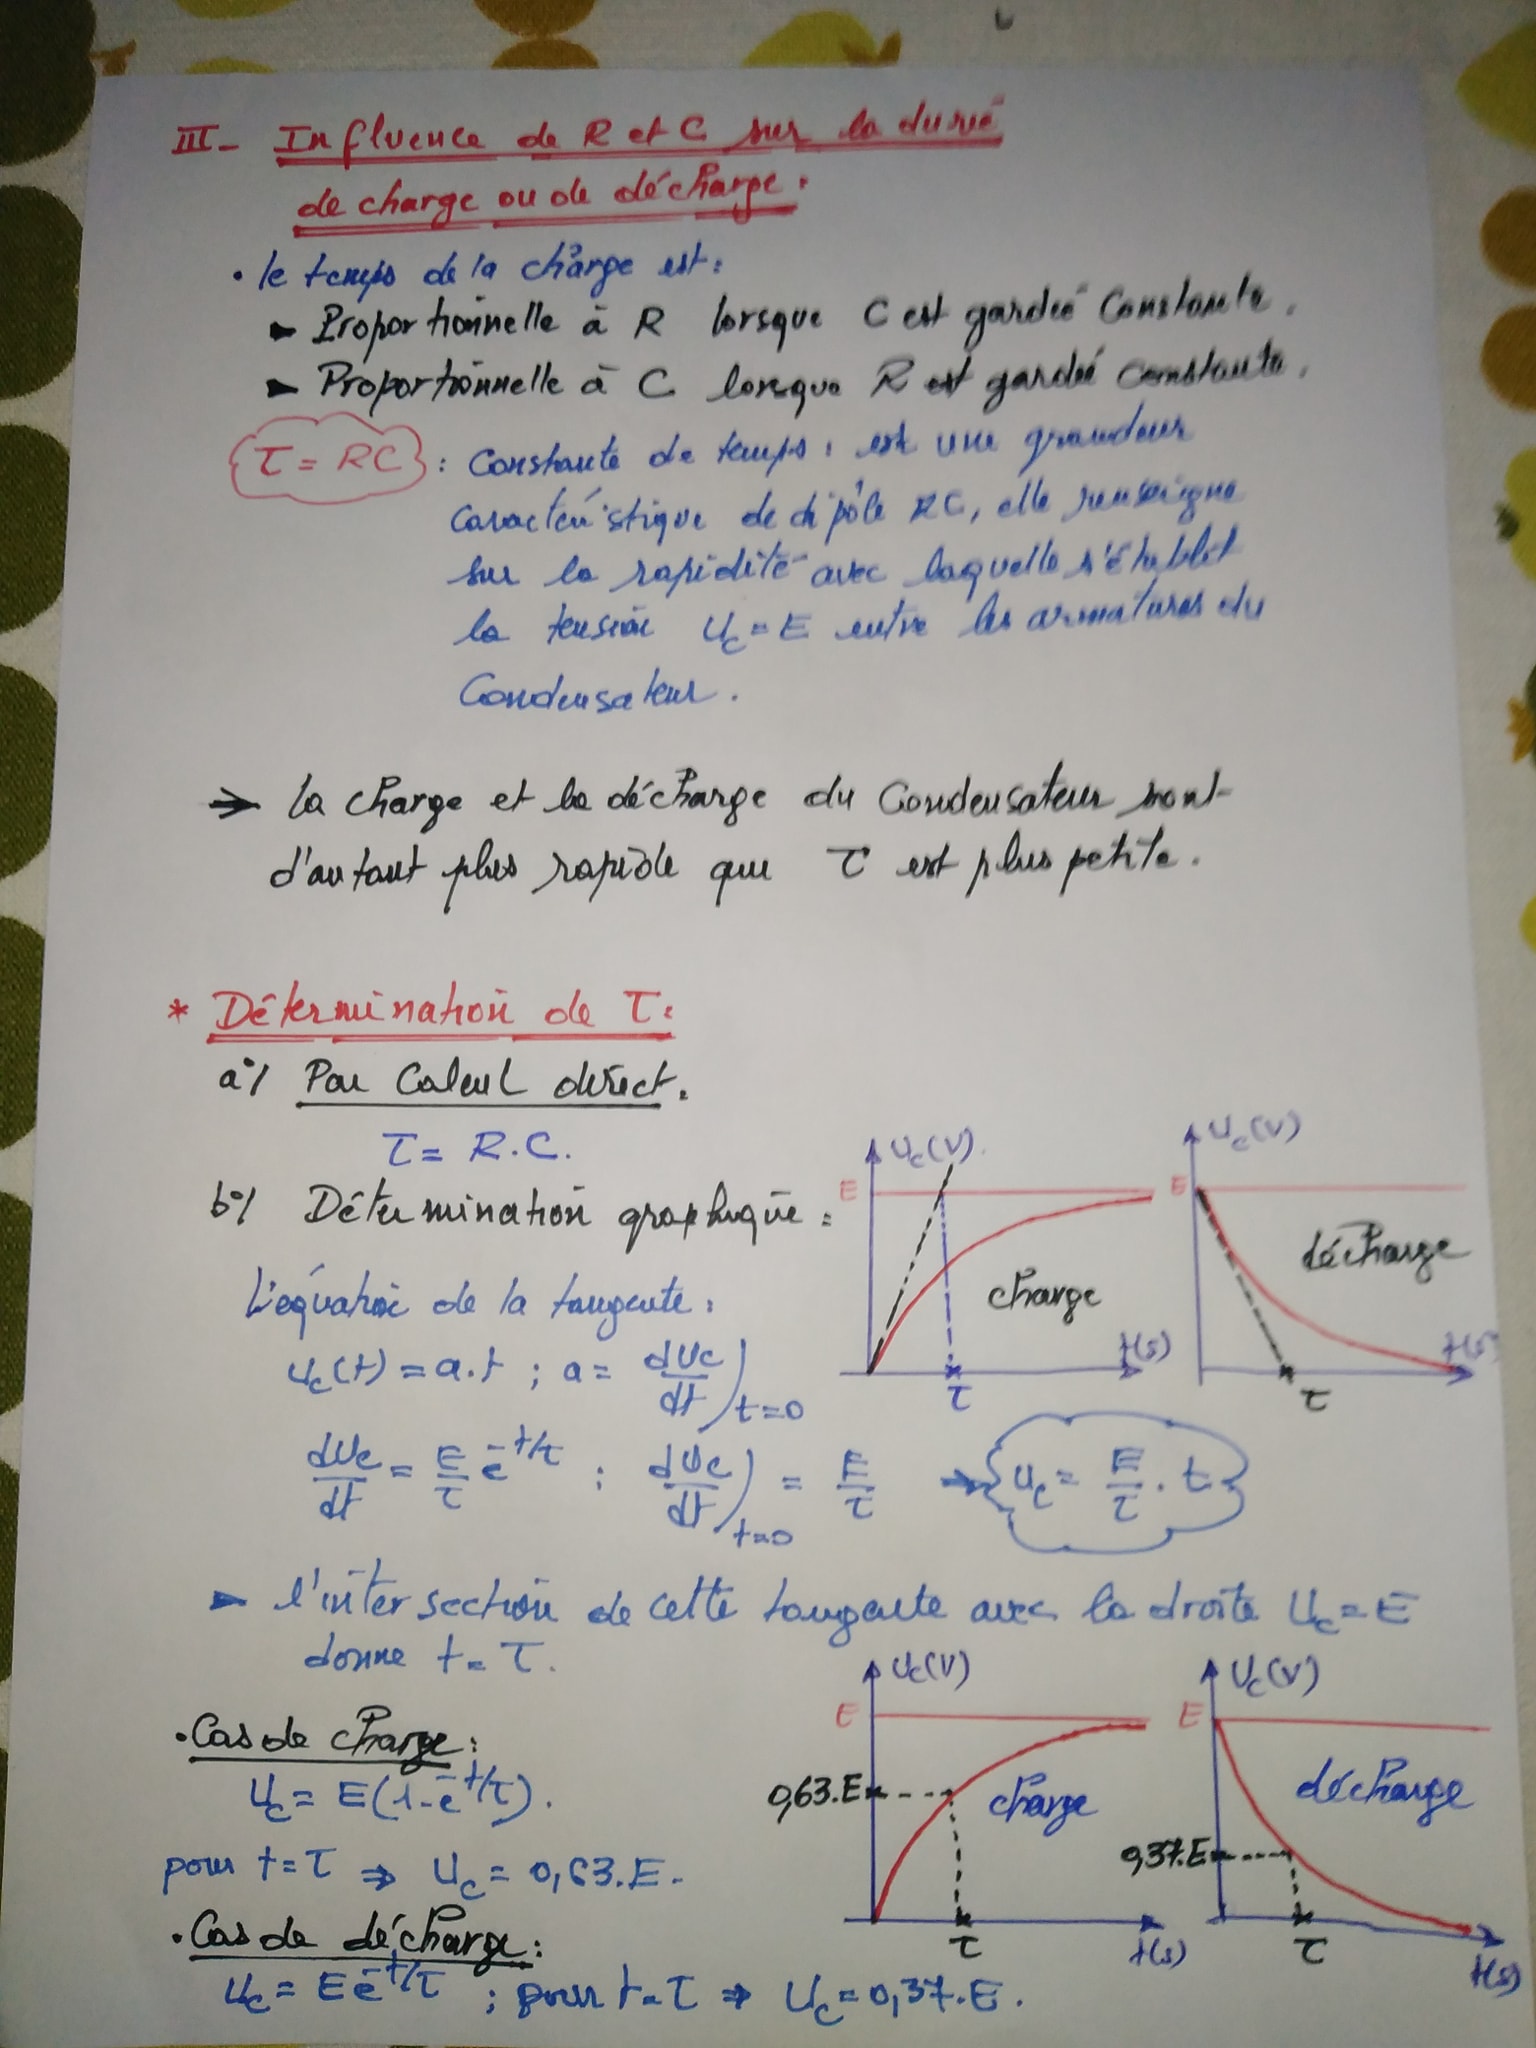 III- Influence de R et C sur la durée
de charge ou de décharge.
• le temps de la charge est:
► Proportionnelle à R lorsque C est gardée Constante.
► Proportionnelle à C lorsque R est gardée constante.
τ = RC : Constante de temps, est une grandeur
caractéristique de dipôle RC, elle renseigne
sur la rapidité avec laquelle s'établit
la tension Uc = E entre les armatures du
Condensateur.
→ la charge et la décharge du Condensateur sont
d'autant plus rapide que τ est plus petite.
* Détermination de τ:
a°/ Par Calcul direct.
τ = R.C.
b°/ Détermination graphique:
Uc(V)
E
charge
t(s)
τ
Uc(V)
E
décharge
t(s)
τ
L'équation de la tangente:
Uc(t) = a.t ; a = dUc/dt)t=0
dUc/dt = E/τ e^-t/τ ; dUc/dt)t=0 = E/τ → Uc = E/τ . t
► l'intersection de cette tangente avec la droite Uc = E
donne t = τ.
Uc(V)
E
0,63.E
charge
τ
t(s)
Uc(V)
E
décharge
0,37.E
τ
t(s)
• Cas de charge:
Uc = E(1-e^-t/τ).
pour t = τ ⇒ Uc = 0,63.E.
• Cas de décharge:
Uc = E e^-t/τ ; pour t = τ ⇒ Uc = 0,37.E.